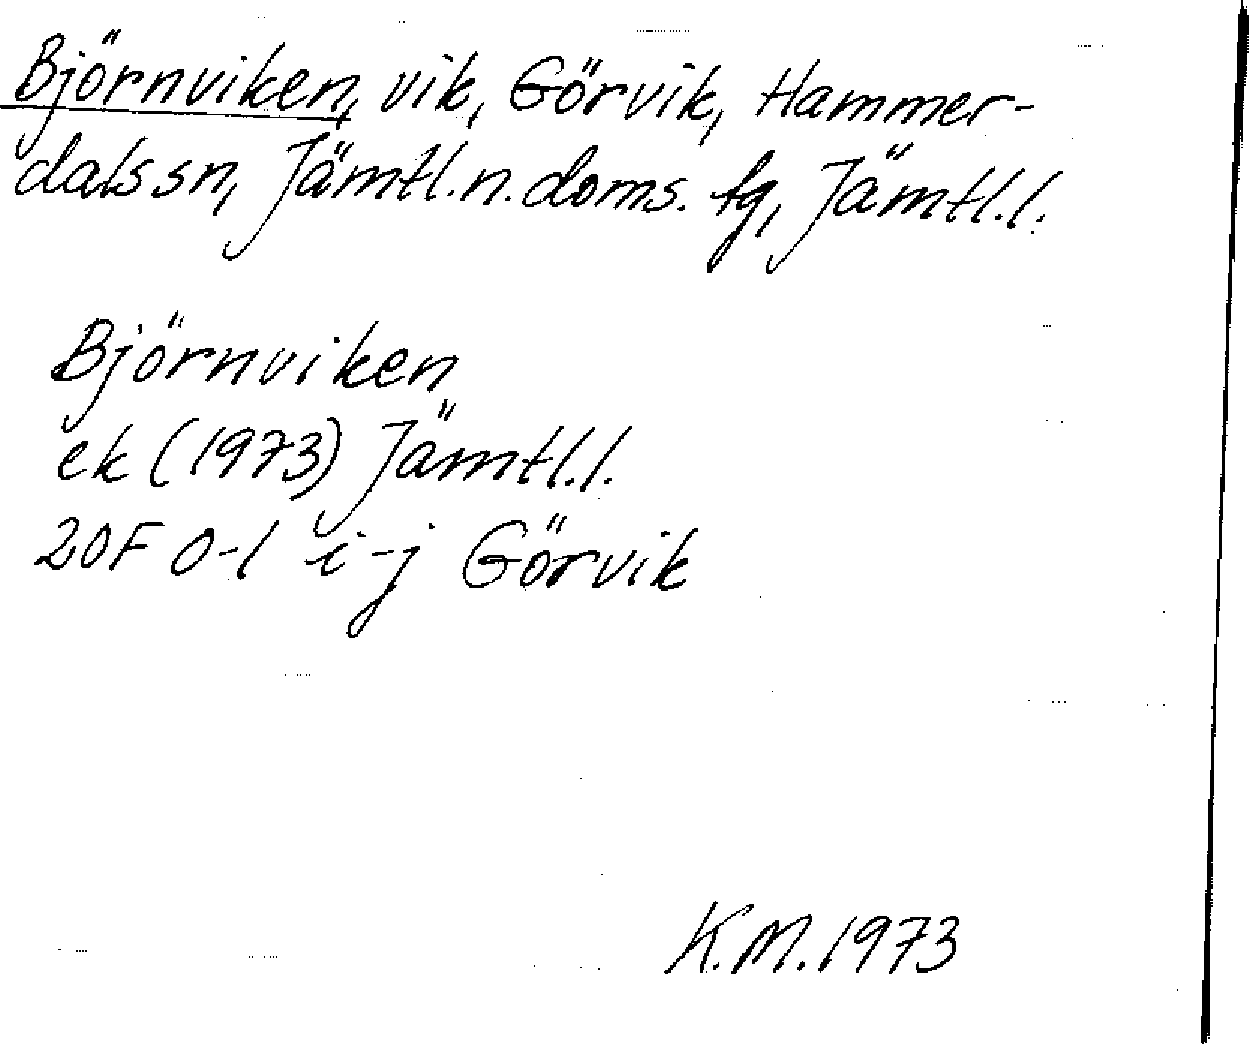 Björnviken, vik, Görvik, Hammer-
dals sn, Jämtl.n.doms. tg, Jämtl.l.
Björnviken
ek (1973) Jämtl.l.
20F 0-1 i-j Görvik
K.M.1973